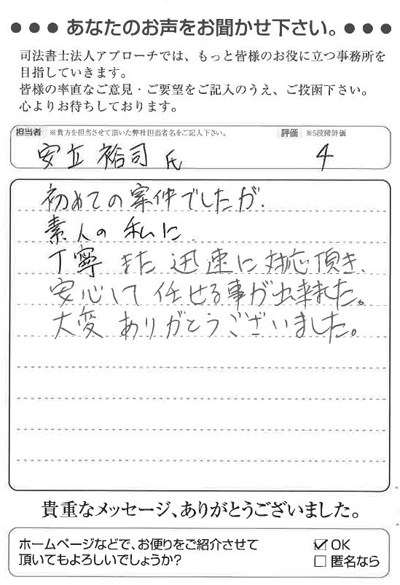 ●●●あなたのお声をお聞かせ下さい。●●●
司法書士法人アプローチでは、もっと皆様のお役に立つ事務所を
目指していきます。
皆様の率直なご意見・ご要望をご記入のうえ、ご投函下さい。
心よりお待ちしております。
担当者 ※貴方を担当させて頂いた弊社担当者名をご記入下さい。 評価 ※5段階評価
安立 裕司 氏 4
初めての案件でしたが、
素人の私に
丁寧 また 迅速に 対応頂き、
安心して 任せる事が出来ました。
大変 ありがとうございました。
貴重なメッセージ、ありがとうございました。
ホームページなどで、お便りをご紹介させて
頂いてもよろしいでしょうか?
☑ OK
□ 匿名なら